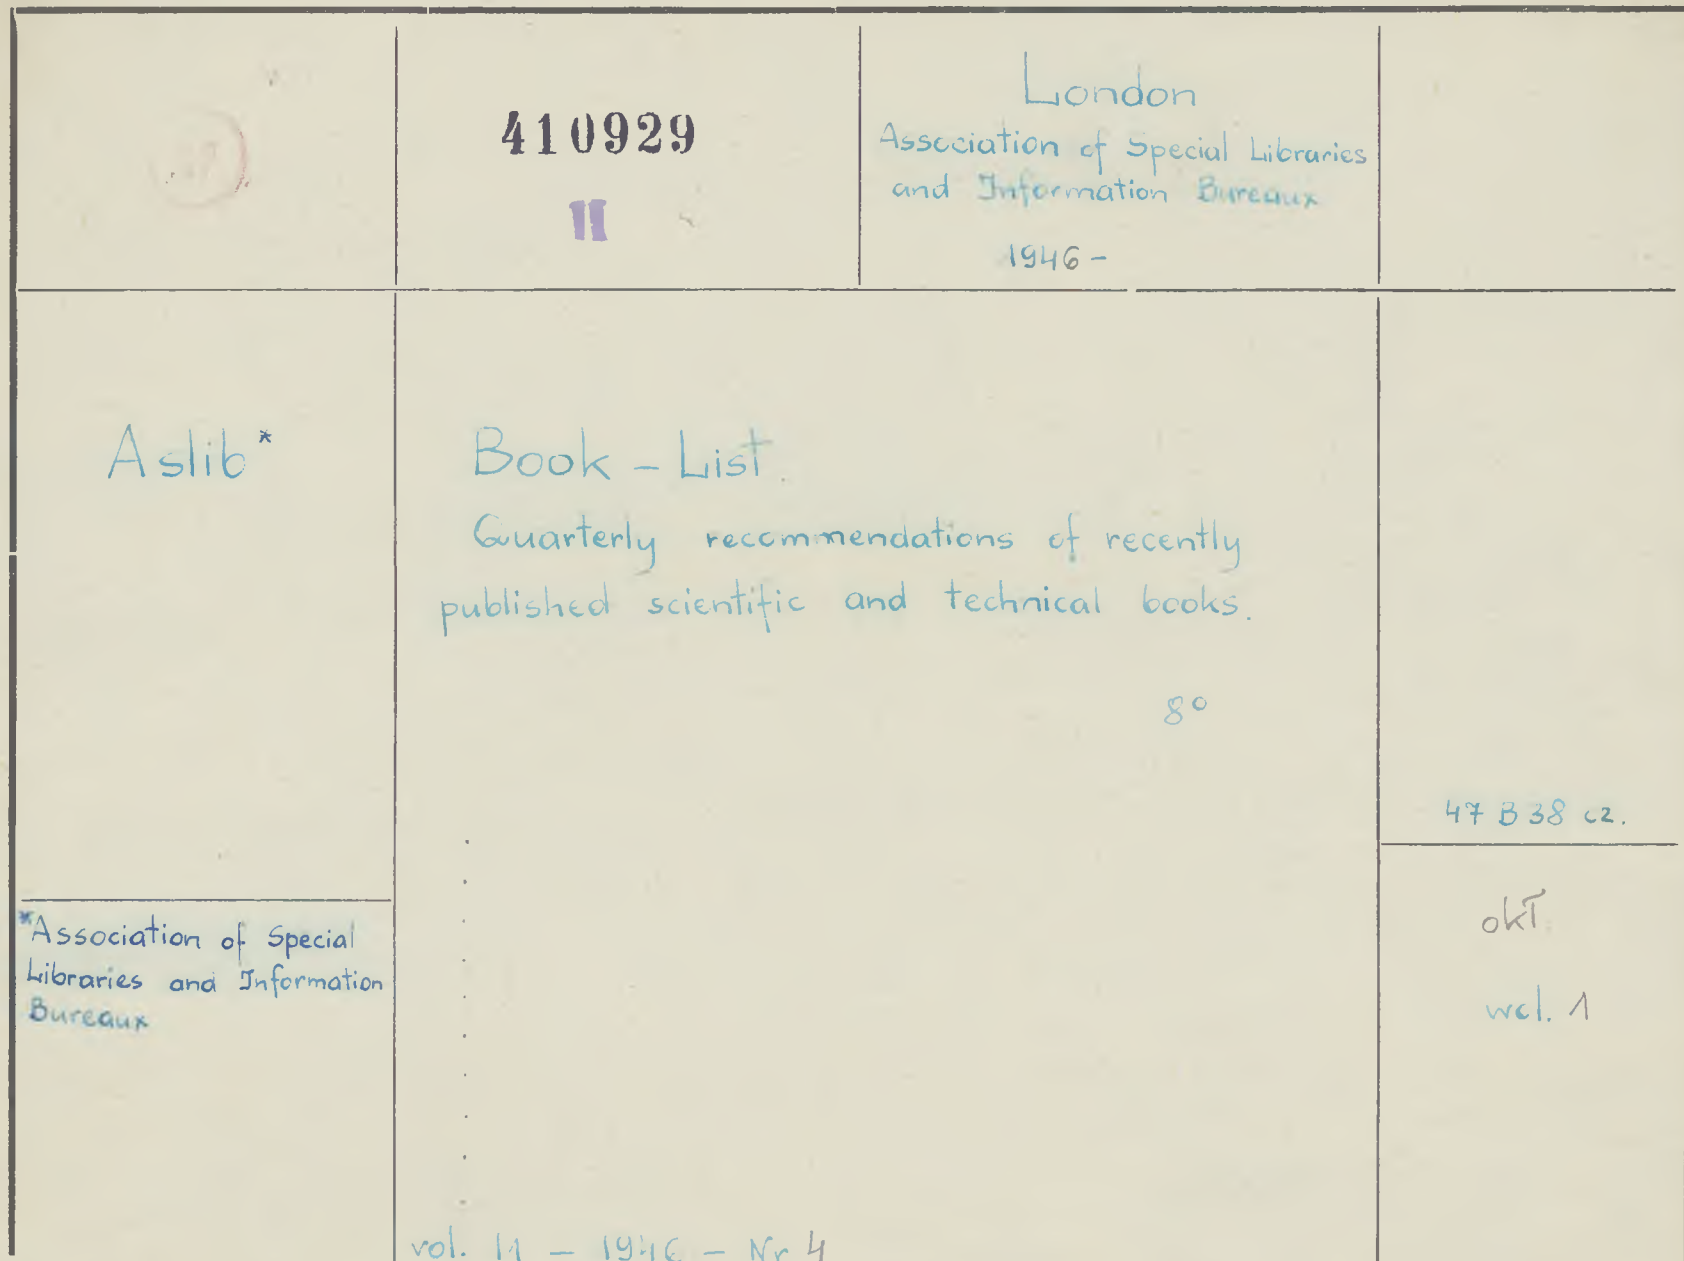 410929
II
London
Association of Special Libraries
and Information Bureaux
1946 -
Aslib*
Book - List.
Quarterly recommendations of recently
published scientific and technical books.
8°
47 B 38 cz.
*Association of Special
Libraries and Information
Bureaux
okt.
wcl. 1
vol. 11 - 1946 - Nr 4